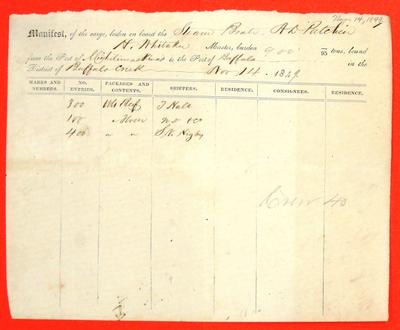 Nov. 14, 1849
Manifest, of the cargo, laden on board the Steam Boat A D Patchin
H. Whitaker Master, burden 900 /95 tons, bound
from the Port of Michilimackinac to the Port of Buffalo in the
District of Buffalo Creek Nov 14. 1849
MARKS AND NUMBERS. NO. ENTRIES. PACKAGES AND CONTENTS. SHIPPERS. RESIDENCE. CONSIGNEES. RESIDENCE.
300 Bbls Beef J Hale
100 " Flour
400 " " S. N. Higby
Crew 40